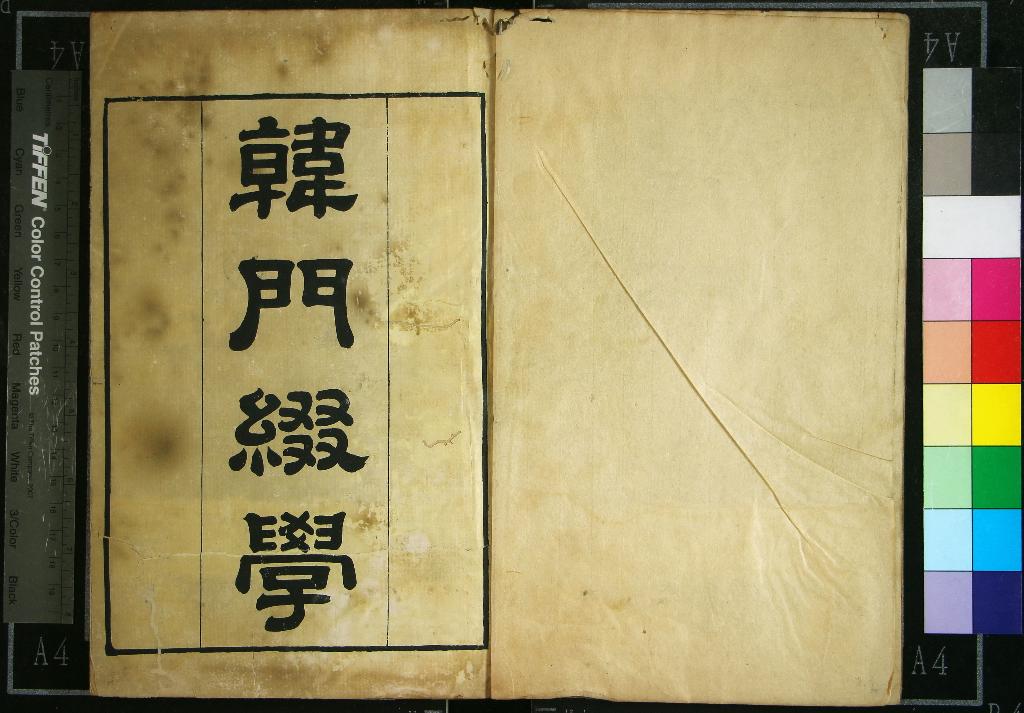 韓門綴學
TIFFEN Color Control Patches
Centimetres
Blue
Cyan
Green
Yellow
Red
Magenta
White
3/Color
Black
A4
A4
A4
A4